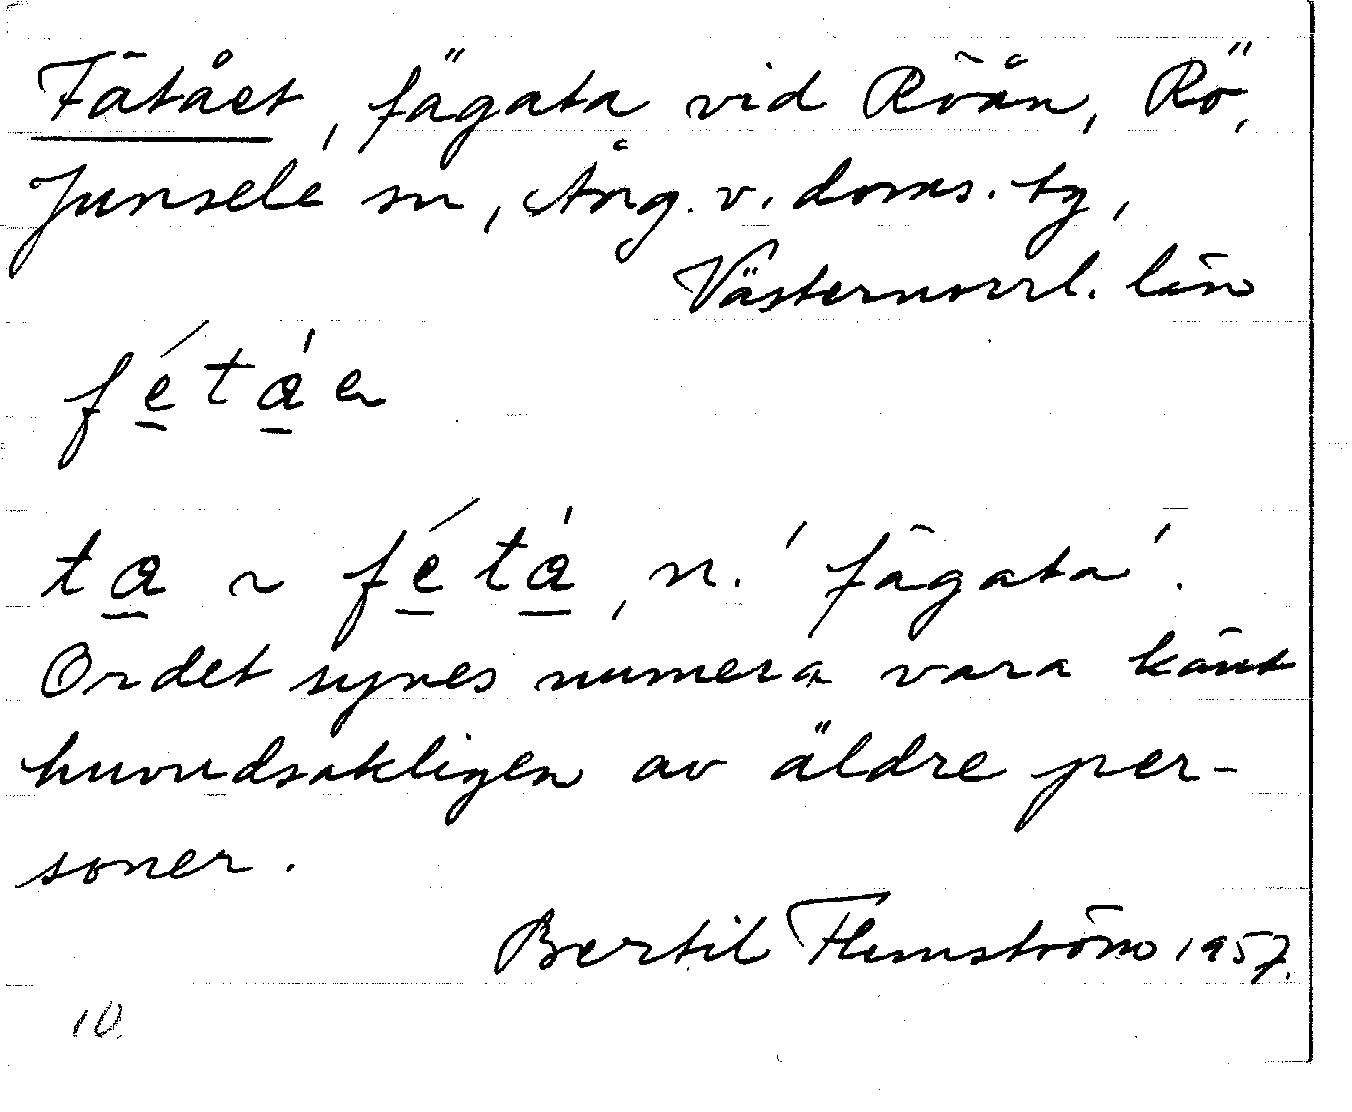 Fätået, fägata vid Röån, Rö,
Junsele sn, Ång. v. doms. tg,
Västernorrl. län
fé̲tá̲en
ta̲ ~ fé̲tá̲, n. 'fägata'.
Ordet synes numera vara känt
huvudsakligen av äldre per-
soner.
Bertil Flemström 1957.
10.